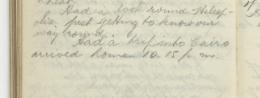 Had a look round Heliop-
olis, just getting to know our
way round.
Had a trip into Cairo
arrived home 10.15 p.m.